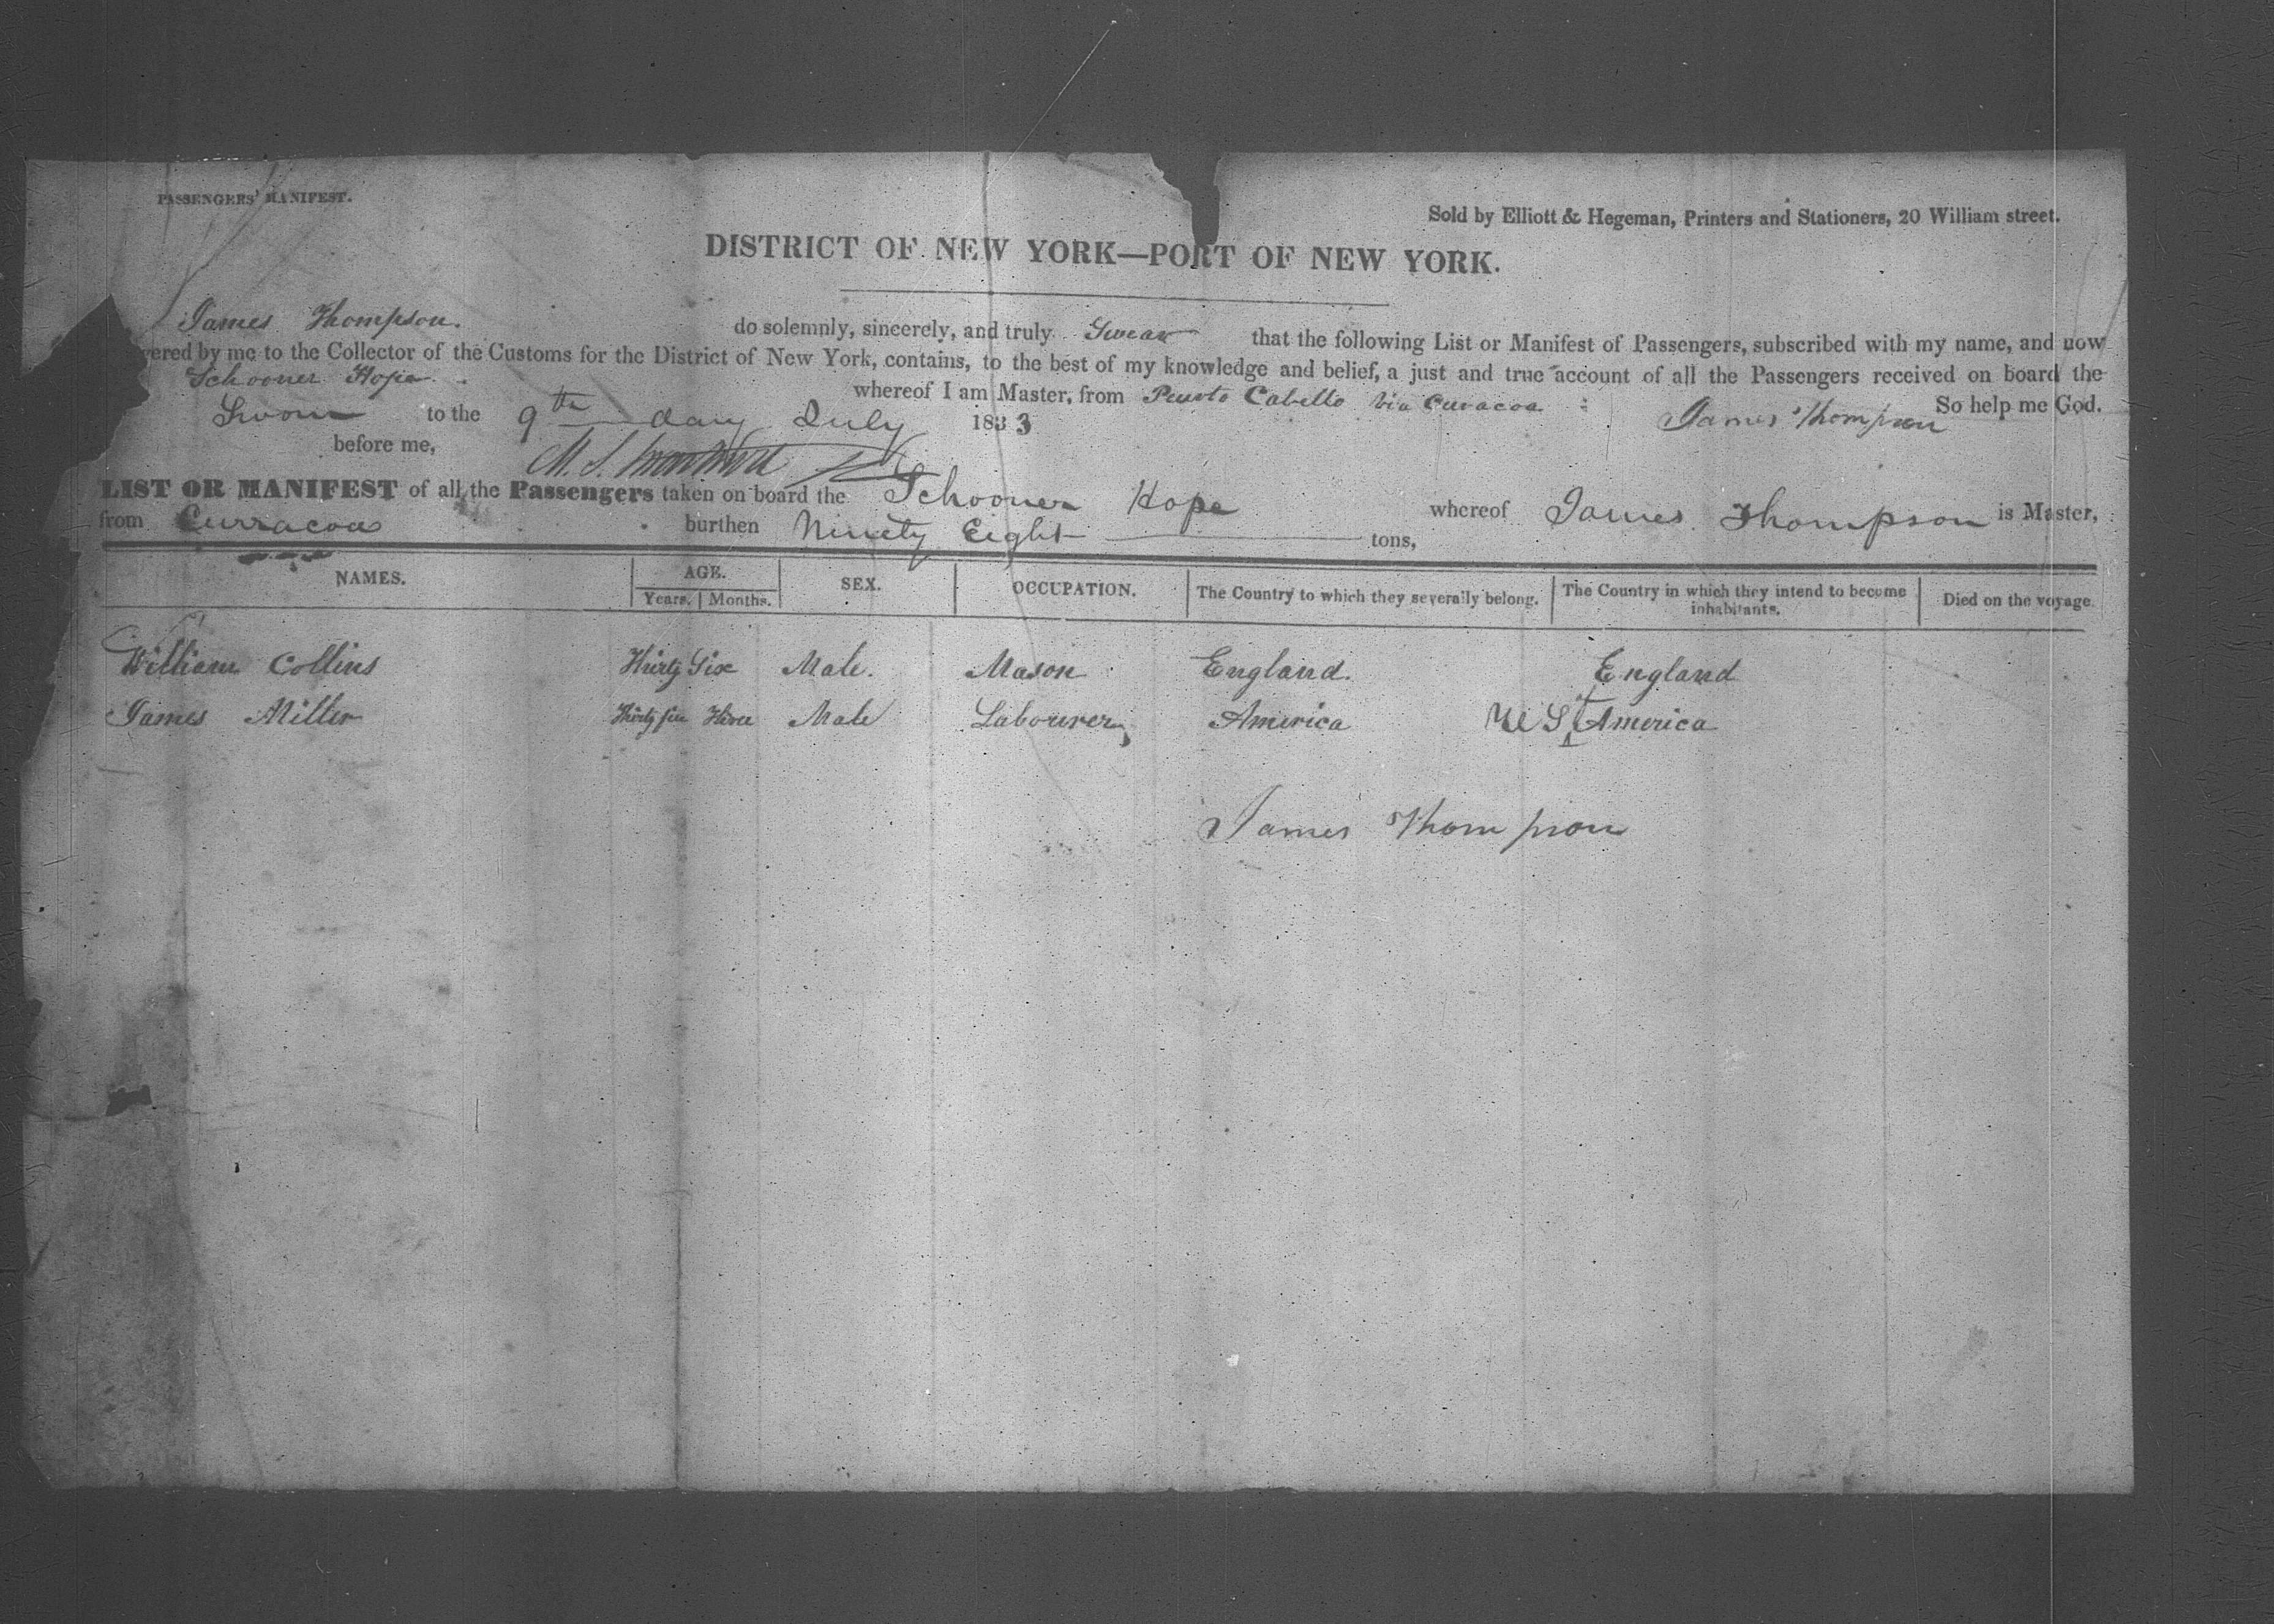 PASSENGERS' MANIFEST.
Sold by Elliott & Hegeman, Printers and Stationers, 20 William street.
DISTRICT OF NEW YORK—PORT OF NEW YORK.
James Thompson. do solemnly, sincerely, and truly Swear that the following List or Manifest of Passengers, subscribed with my name, and now
vered by me to the Collector of the Customs for the District of New York, contains, to the best of my knowledge and belief, a just and true account of all the Passengers received on board the
Schooner Hope. whereof I am Master, from Puerto Cabello via Curacoa So help me God.
Sworn to the 9th day July 1833 James Thompson
before me,
LIST OR MANIFEST of all the Passengers taken on board the Schooner Hope whereof James Thompson is Master,
from Curracoa burthen Ninety Eight tons,
NAMES. AGE. SEX. OCCUPATION. The Country to which they severally belong. The Country in which they intend to become inhabitants. Died on the voyage
Years. Months.
William Collins Thirty Six Male. Mason England. England
James Miller Thirty Three Male Labourer, America US America
James Thompson